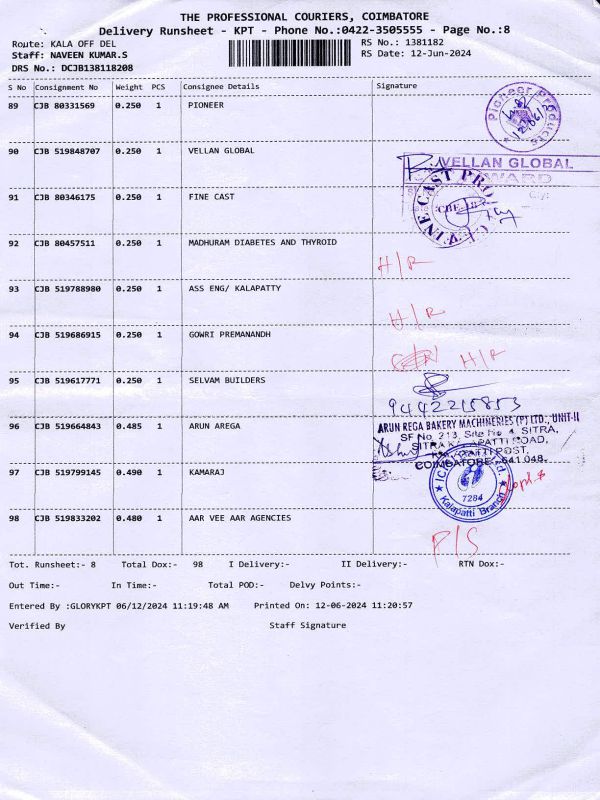 THE PROFESSIONAL COURIERS, COIMBATORE
Delivery Runsheet - KPT - Phone No.:0422-3505555 - Page No.:8
Route: KALA OFF DEL RS No.: 1381182
Staff: NAVEEN KUMAR.S RS Date: 12-Jun-2024
DRS No.: DCJB138118208
S No Consignment No Weight PCS Consignee Details Signature
89 CJB 80331569 0.250 1 PIONEER
Pioneer Products
90 CJB 519848707 0.250 1 VELLAN GLOBAL
VELLAN GLOBAL
91 CJB 80346175 0.250 1 FINE CAST
FINE CAST PRO
92 CJB 80457511 0.250 1 MADHURAM DIABETES AND THYROID
H/R
93 CJB 519788980 0.250 1 ASS ENG/ KALAPATTY
H/R
94 CJB 519686915 0.250 1 GOWRI PREMANANDH
H/R
95 CJB 519617771 0.250 1 SELVAM BUILDERS
9442215853
96 CJB 519664843 0.485 1 ARUN AREGA
ARUN REGA BAKERY MACHINERIES (P) LTD., UNIT-II
SF No. 213, Site No. 4, SITRA,
POST,
COIMBATORE - 641 048.
97 CJB 519799145 0.490 1 KAMARAJ
7284
Kalapatti Branch
98 CJB 519833202 0.480 1 AAR VEE AAR AGENCIES
P/S
Tot. Runsheet:- 8 Total Dox:- 98 I Delivery:- II Delivery:- RTN Dox:-
Out Time:- In Time:- Total POD:- Delvy Points:-
Entered By :GLORYKPT 06/12/2024 11:19:48 AM Printed On: 12-06-2024 11:20:57
Verified By Staff Signature